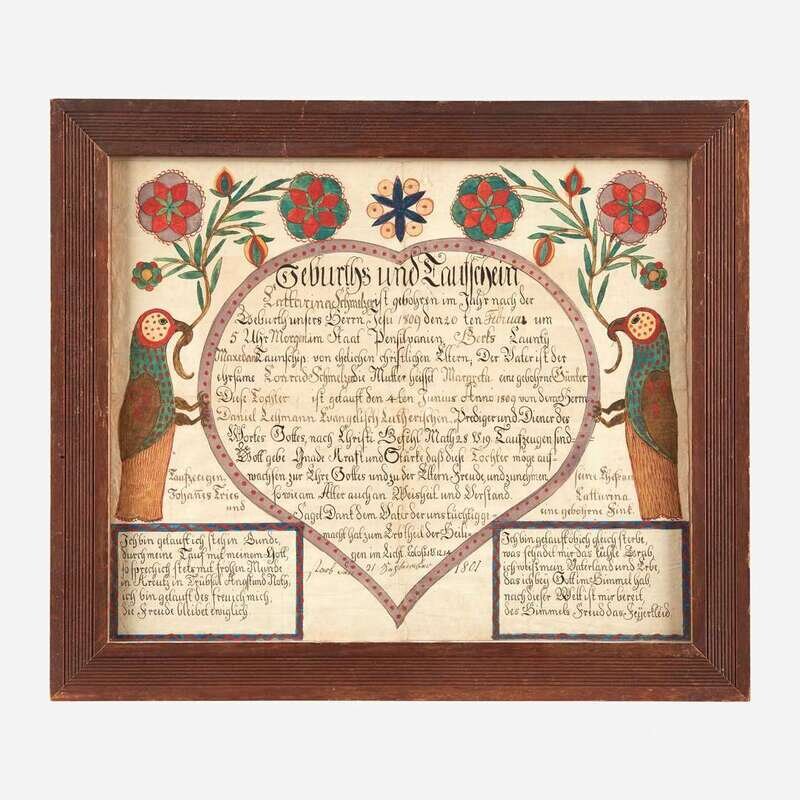 Geburths und Taufschein
Catharina Schmelzer ist gebohren im Jahr nach der
Geburth unsers Herrn Jesu 1809 den 20 ten Februar um
5 Uhr Morgen im Staat Pensilvanien Berks Caunty
Taunschip von ehelichen christlichen Eltern, Der Vater ist der
ehrsame Conrad Schmelzer die Mutter heisset Margreta eine gebohrne Günter
Diese Tochter ist getauft den 4 ten Junius Anno 1809 von dem Herrn
Daniel Lehmann Evangelisch Lutherischen Prediger und Diener des
Wortes Gottes, nach Christi Befehl Math 28 V 19. Taufzeugen sind
Gott gebe Gnade Kraft und Stärke daß diese Tochter möge auf-
wachsen zur Ehr Gottes und zu der Eltern Freude und zunehmen
so wie am Alter auch an Weisheit und Verstand.
Saget Dank dem Vater der uns tüchtig ge-
macht hat zum Erbtheil der Heili-
gen im Licht
1801
Taufzeigen
Johañes Fries
und
seine
Catharina
eine gebohrne Fink.
Ich bin getauft ich steh in Bunde,
durch meine Tauf mit meinem Gott,
so sprech ich stets mit frohen Munde
in Kreutz in Trübsal Angst und Noth,
ich bin getauft des freu ich mich,
die Freude bleibet ewiglich
Ich bin getauft ob ich gleich sterbe,
was schadet mir das kühle Grab,
ich weiß mein Vaterland und Erbe,
das ich bey Gott im Himmel hab,
nach dieser Welt ist mir bereit,
des Himmels Freud das Feyerkleid.